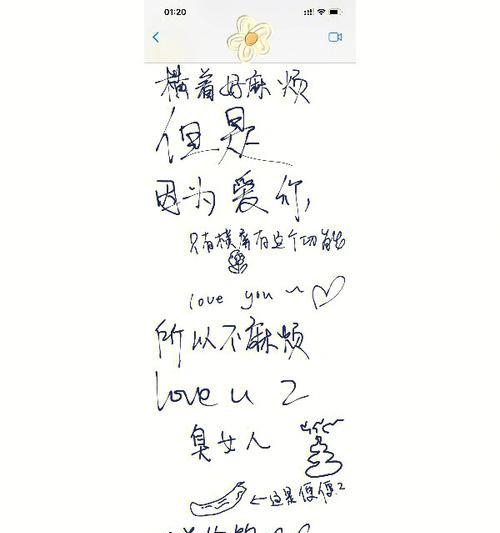 01:20
横着好麻烦
但是
因为爱你,
只有横屏有这个功能
love you ~
所以不麻烦
love u 2
臭女人
←这是便便?